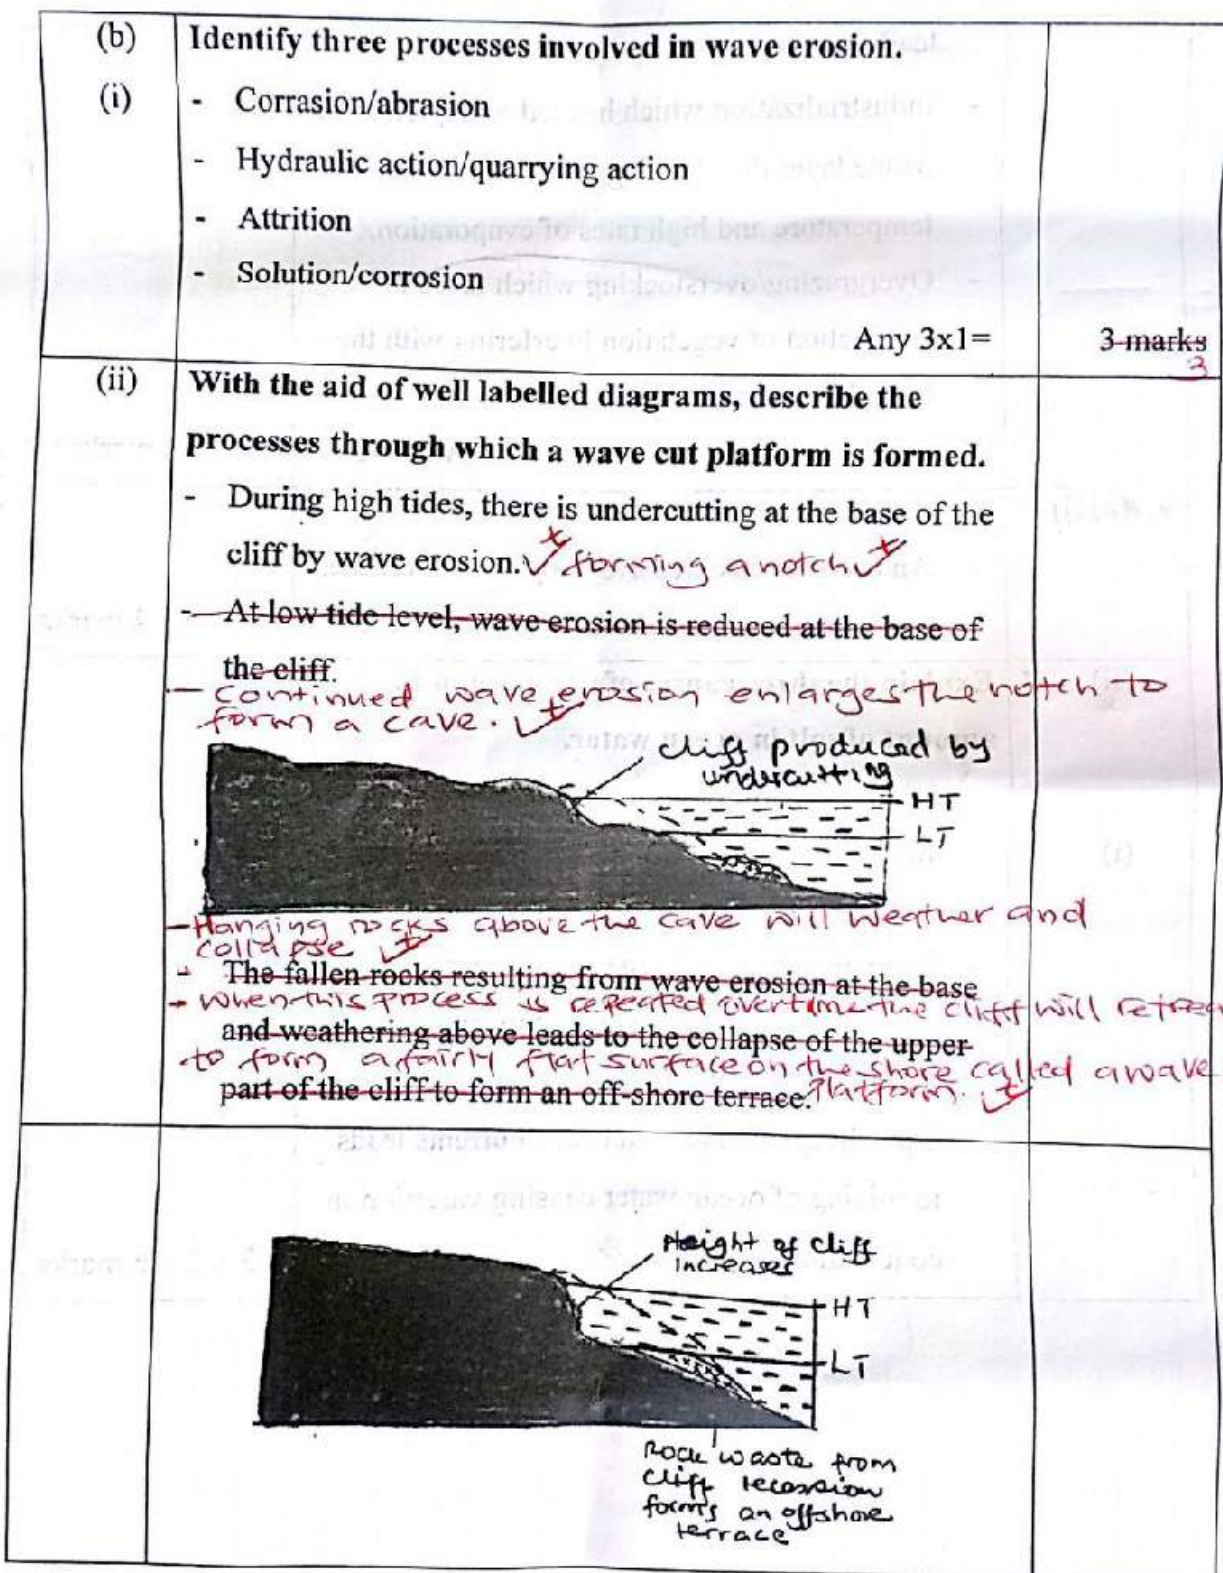 (b) Identify three processes involved in wave erosion.
(i) - Corrasion/abrasion
- Hydraulic action/quarrying action
- Attrition
- Solution/corrosion
Any 3x1= 3 marks
3
(ii) With the aid of well labelled diagrams, describe the
processes through which a wave cut platform is formed.
- During high tides, there is undercutting at the base of the
cliff by wave erosion. ✓ forming a notch ✓
- At low tide level, wave erosion is reduced at the base of
the cliff.
- Continued wave erosion enlarges the notch to
form a cave. ✓
cliff produced by
undercutting
HT
LT
- Hanging rocks above the cave will weather and
collapse ✓
- The fallen rocks resulting from wave erosion at the base
- When this process is repeated overtime the cliff will retrea
and weathering above leads to the collapse of the upper
to form a fairly flat surface on the shore called a wave
part of the cliff to form an off-shore terrace. Platform. ✓
Height of cliff
increases
HT
LT
Rock waste from
cliff recession
forms an offshore
terrace